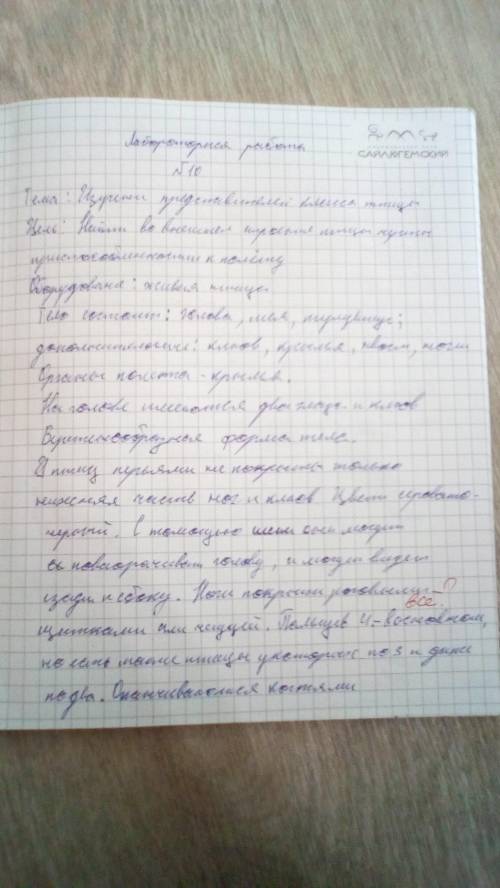 Лабораторная работа
САЙЛЮГЕМСКИЙ
№10
Тема: Изучени представителей класса птицы
Цель: Найти во внешнем строение птицы
приспособленности к полёту
Оборудование: живая птица
Тело состоит: голова, шея, туловище;
дополнительные: клюв, крылья, хвост, ноги
Органы полета - крылья.
На голове имеються два глаза и клюв
форма тела.
У птиц перьями не покрыты только
нижняя часть ног и клюв Цвет серовато-
черный. С помощью шеи они могут
поворачивать голову, и могут видеть
сзади и сбоку. Ноги покрыты роговыми
все?
щитками или чешуёй. Пальцев 4 - в основном,
но есть такие птицы у которых по 3 и даже
по два. Оканчиваются когтями